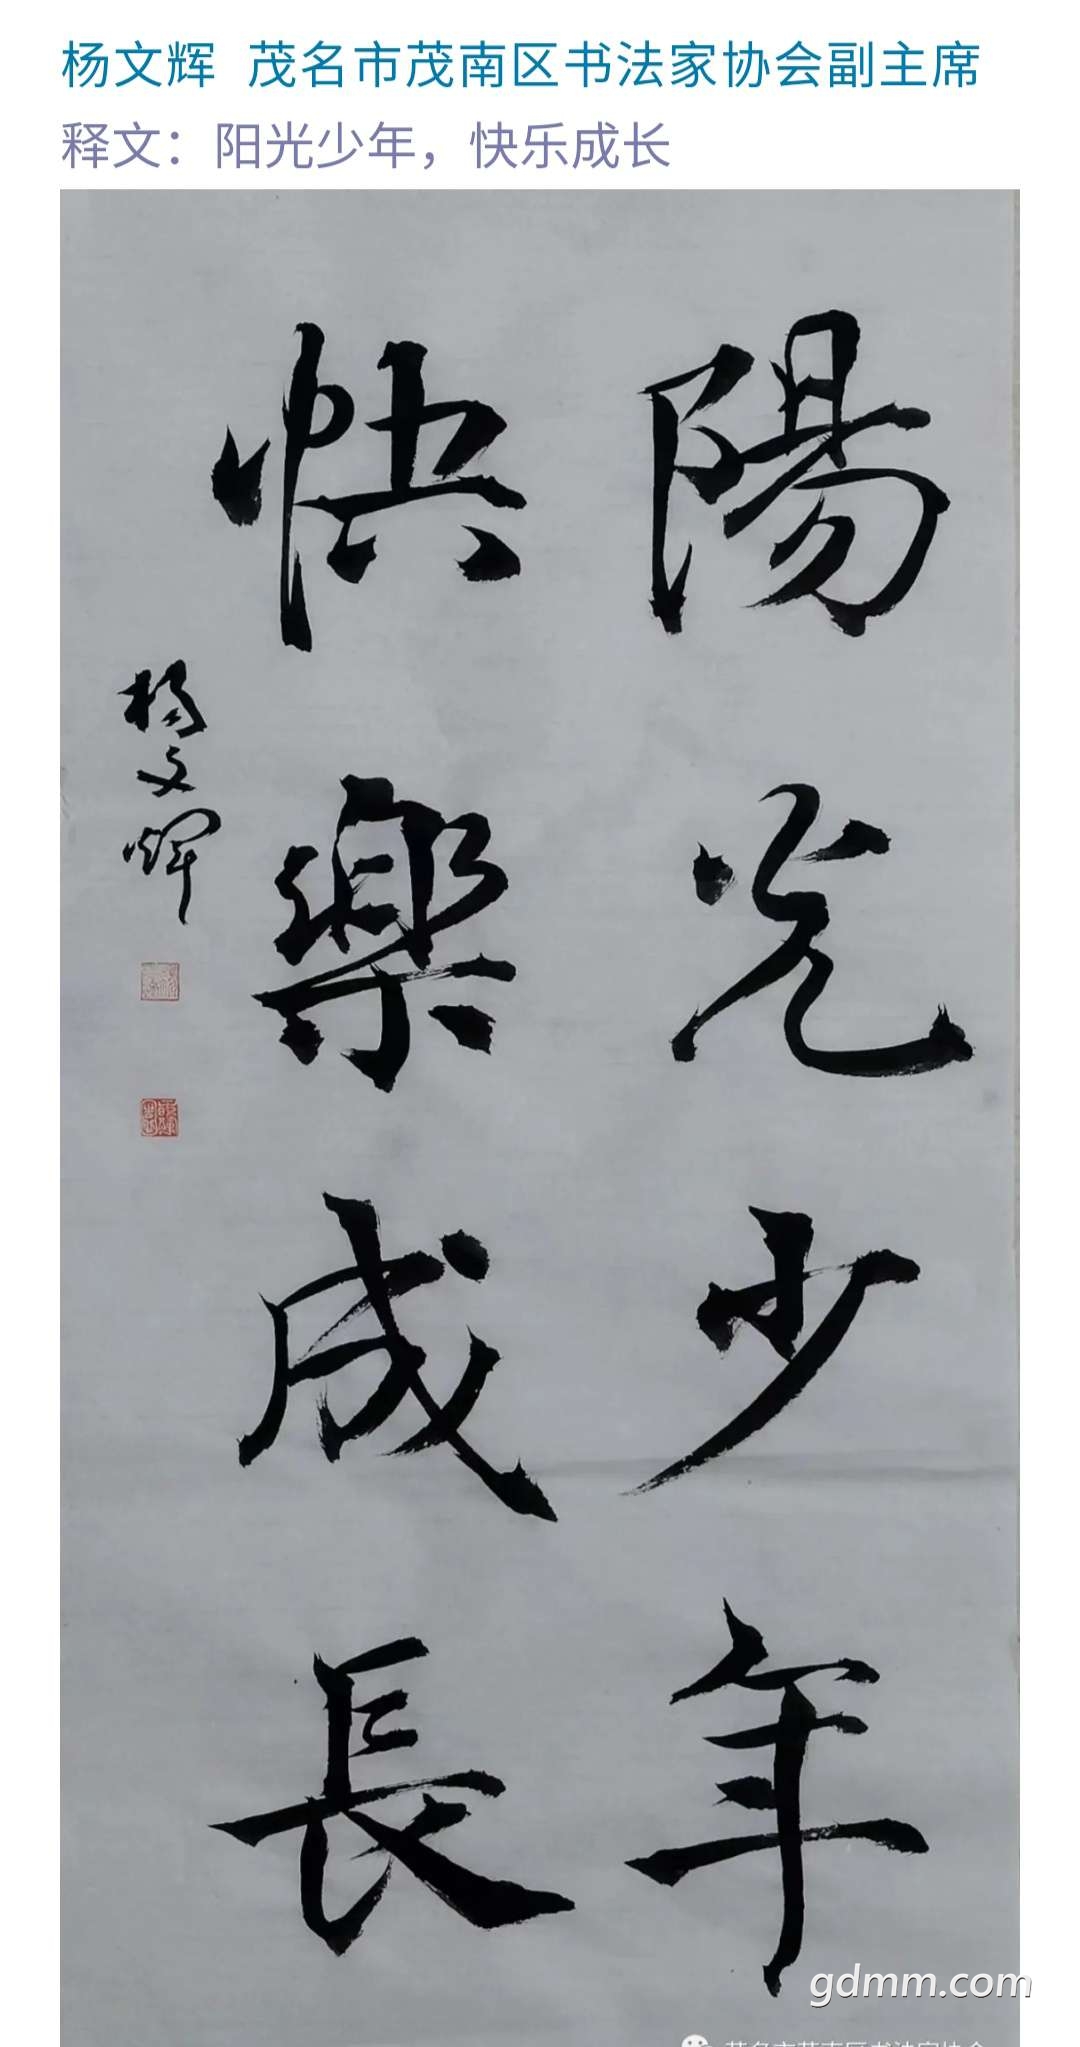 杨文辉 茂名市茂南区书法家协会副主席
释文：阳光少年，快乐成长
陽光少年
快樂成長
杨文辉
gdmm.com